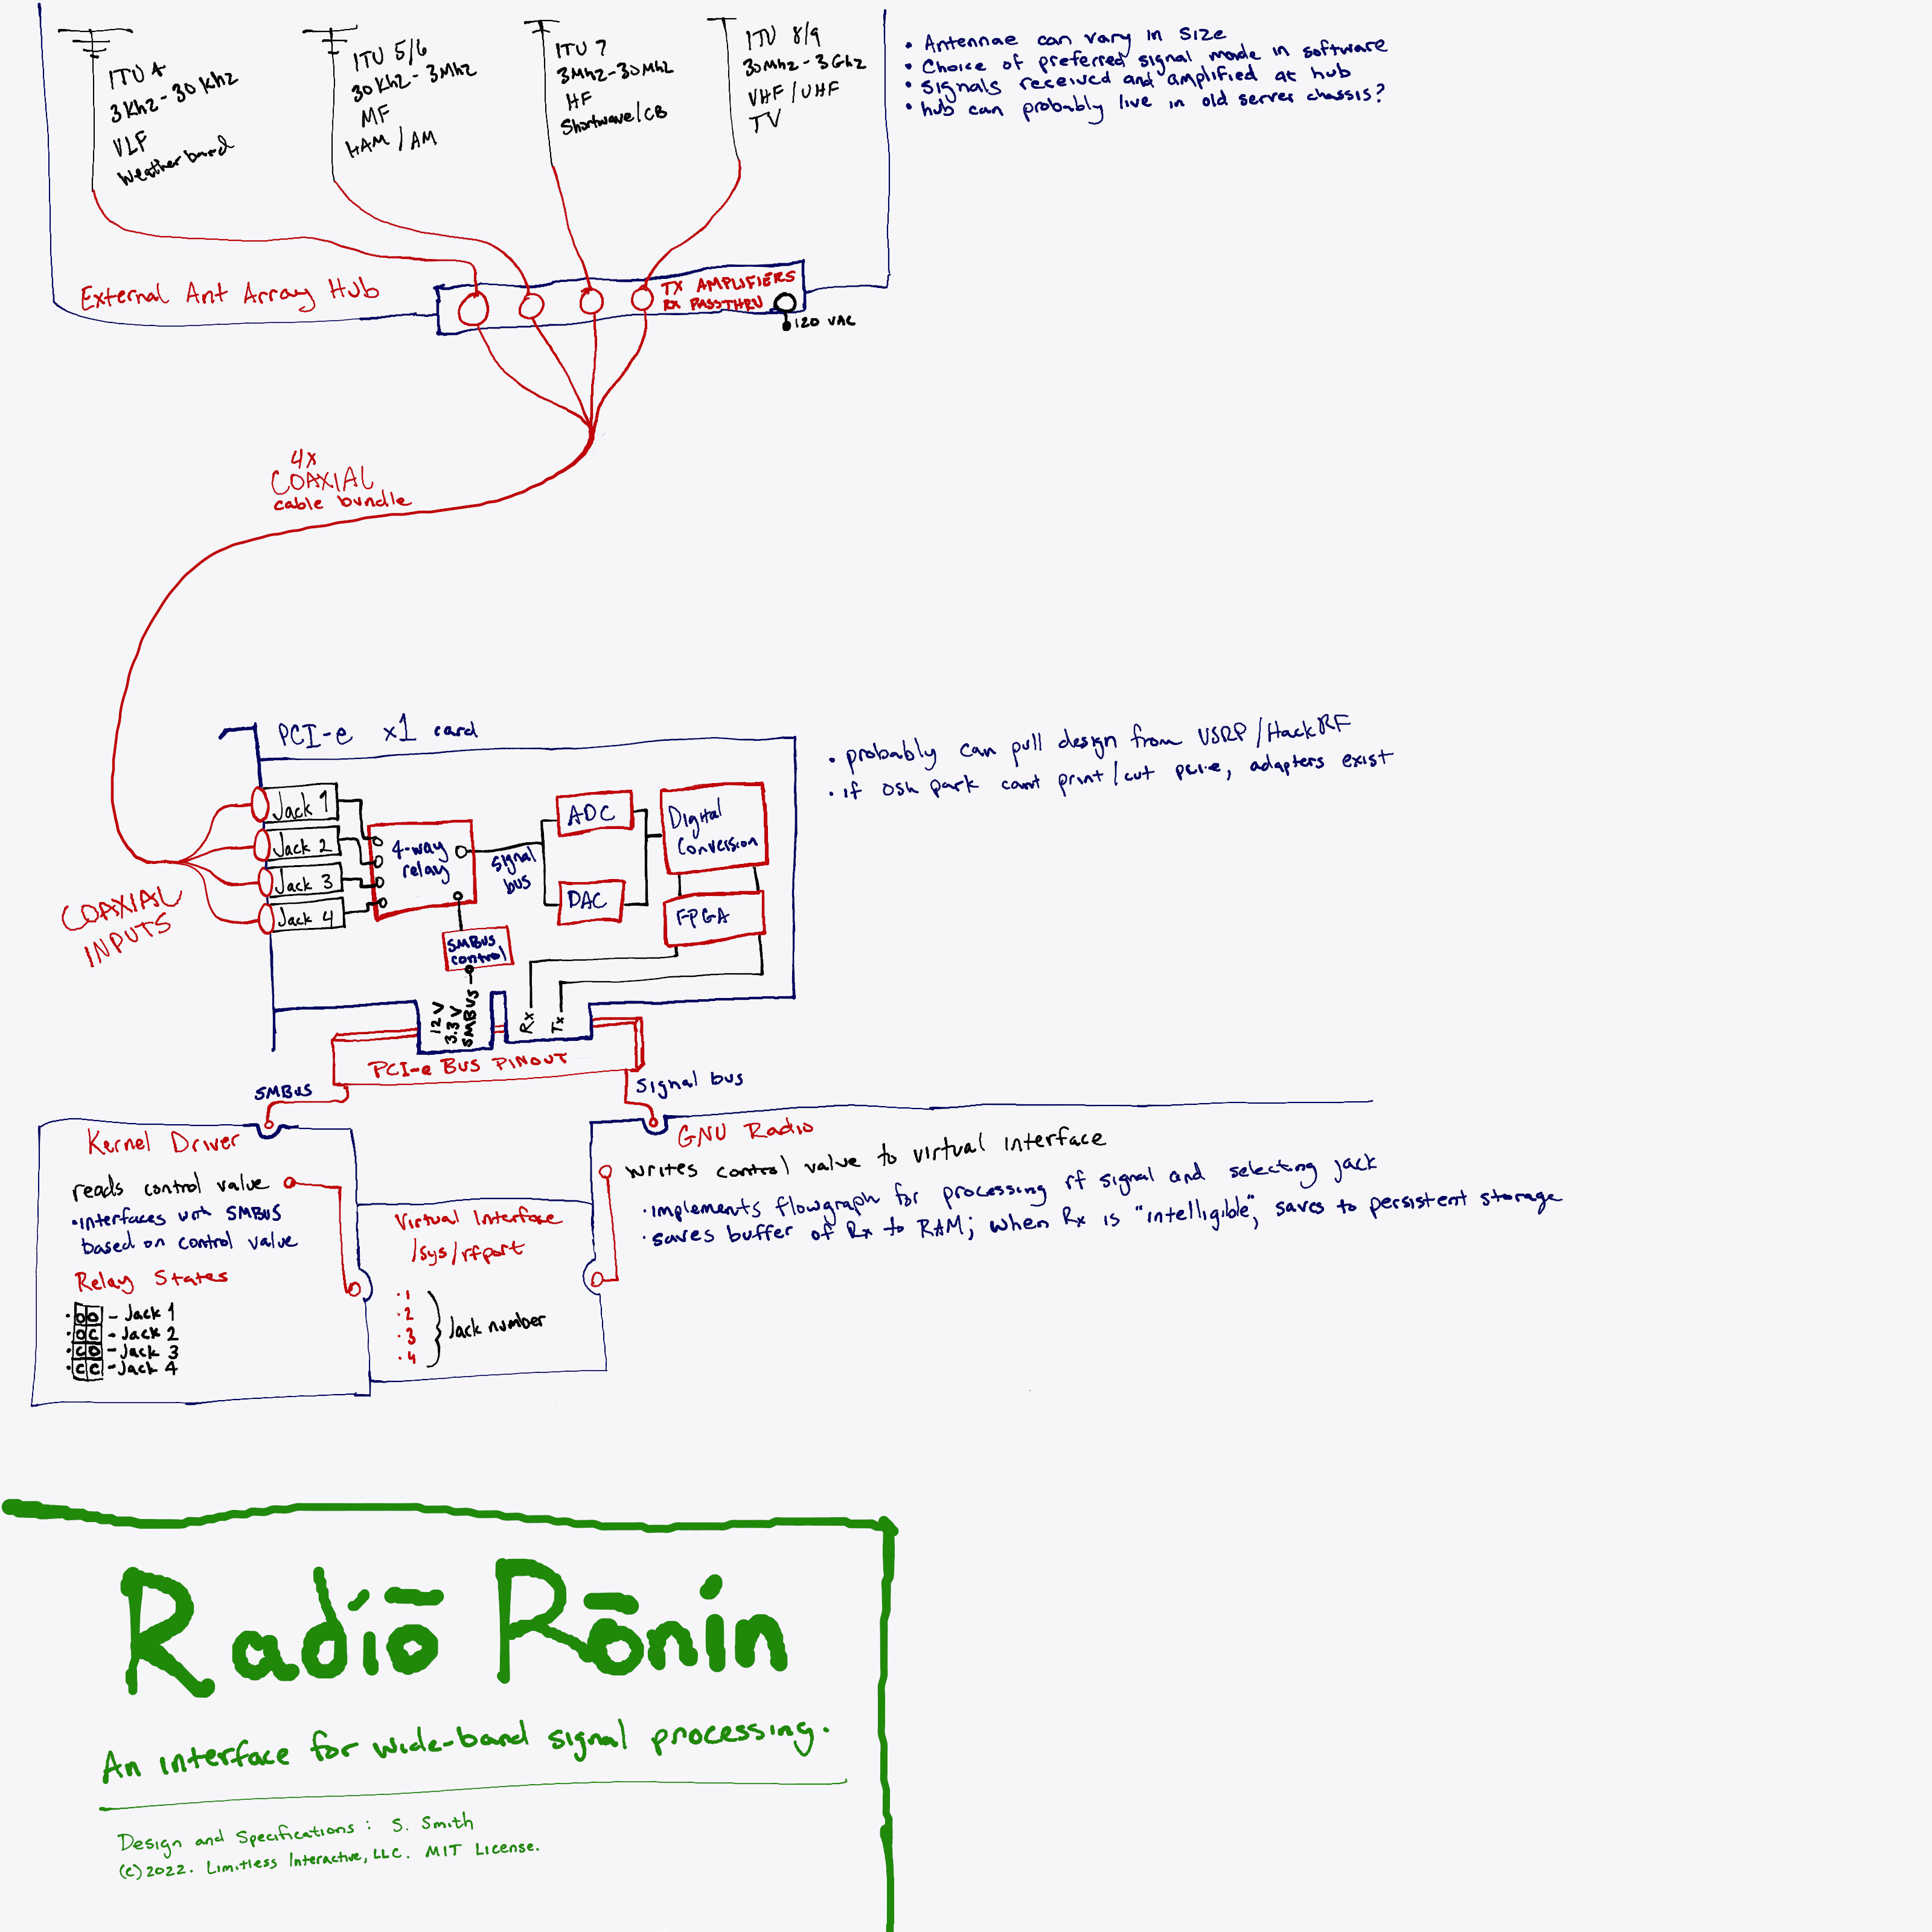 ITU 4
3Khz-30Khz
VLF
Weather band
ITU 5/6
30Khz-3Mhz
MF
HAM/AM
ITU 7
3Mhz-30Mhz
HF
Shortwave/CB
ITU 8/9
30Mhz-3Ghz
VHF/UHF
TV
• Antennae can vary in size
• Choice of preferred signal made in software
• signals received and amplified at hub
• hub can probably live in old server chassis?
External Ant Array Hub
TX AMPLIFIERS
RX PASSTHRU
120 VAC
4x
COAXIAL
cable bundle
PCI-e x1 card
• probably can pull design from USRP/HackRF
• if osh park cant print/cut pci-e, adapters exist
Jack 1
Jack 2
Jack 3
Jack 4
COAXIAL
INPUTS
4-way
relay
signal
bus
ADC
DAC
Digital
Conversion
FPGA
SMBus
control
12V
3.3V
SMBUS
Rx
Tx
PCI-e Bus PINOUT
SMBus
Signal bus
Kernel Driver
reads control value
• interfaces with SMBUS
based on control value
Relay States
• OO - Jack 1
• OC - Jack 2
• CO - Jack 3
• CC - Jack 4
Virtual Interface
/sys/rfport
• 1
• 2
• 3
• 4
Jack number
GNU Radio
writes control value to virtual interface
• implements flowgraph for processing rf signal and selecting jack
• saves buffer of Rx to RAM; when Rx is "intelligible", saves to persistent storage
Radíō Rōnin
An interface for wide-band signal processing.
Design and Specifications: S. Smith
(c)2022. Limitless Interactive, LLC. MIT License.